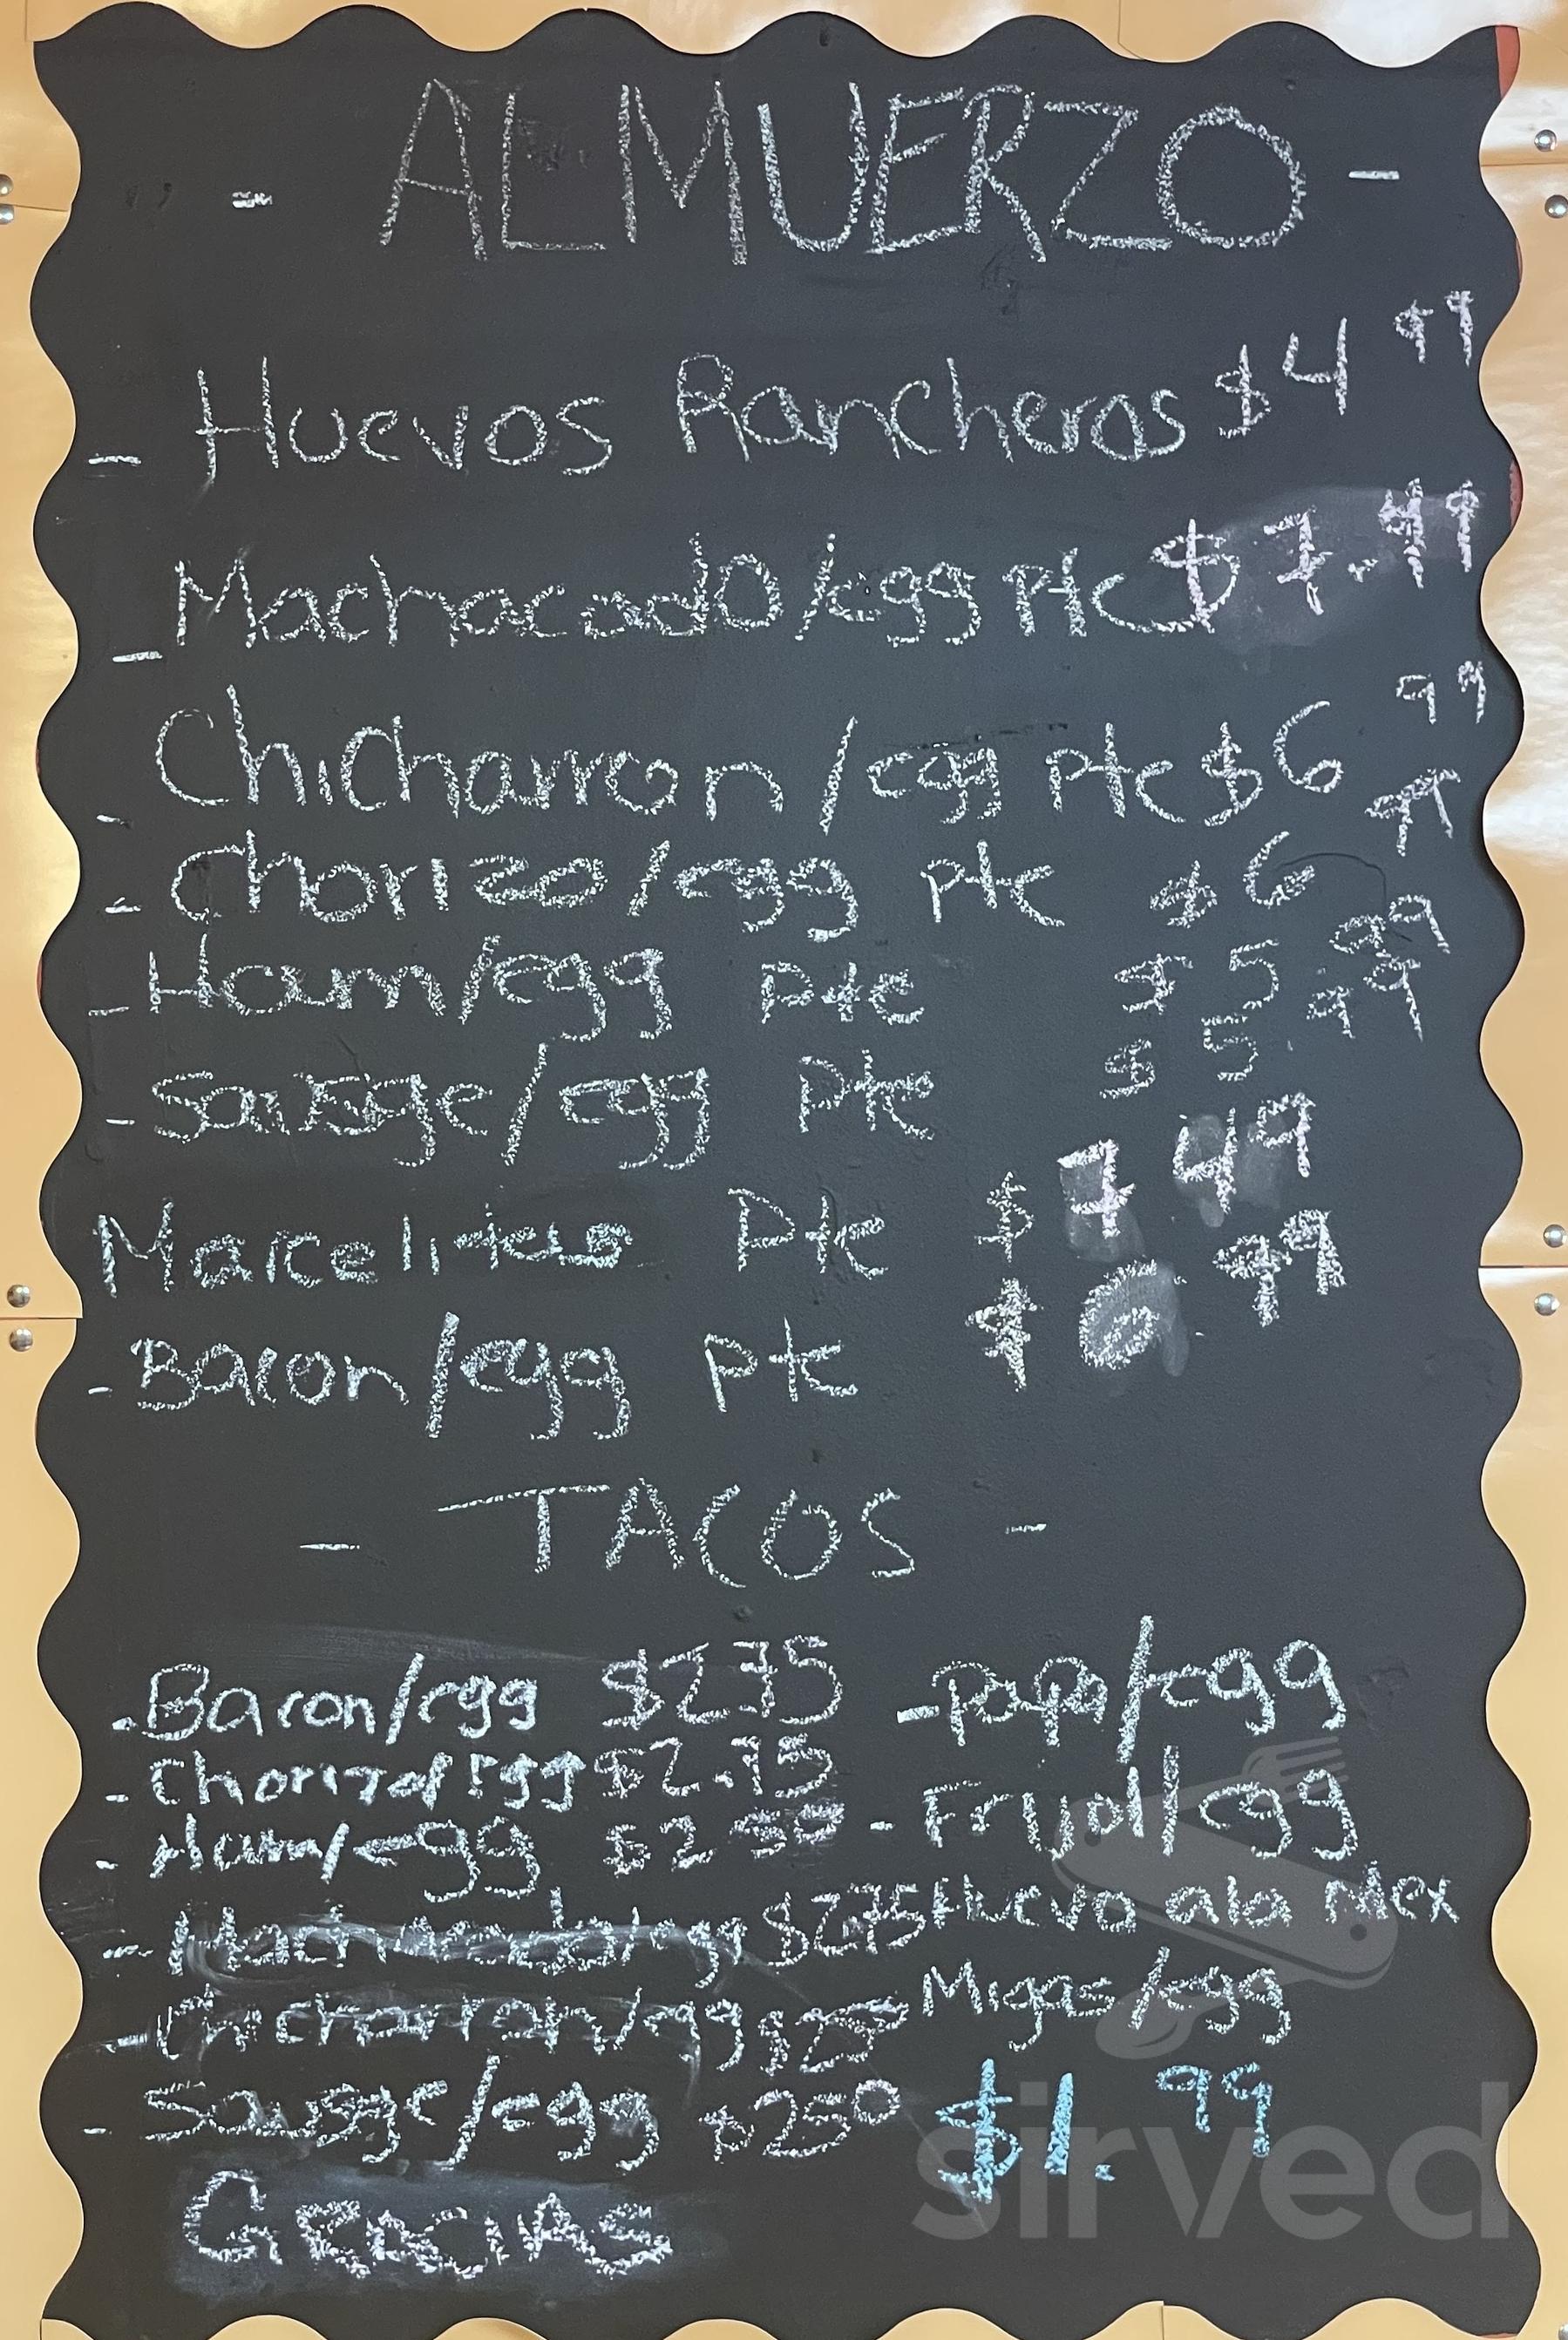 - ALMUERZO -
- Huevos Rancheros $4 99
- Machacado/egg Pte $7.49
- Chicharron/egg Pte $6 99
- Chorizo/egg pte $6 99
- Ham/egg Pte $5 99
- Sausage/egg Pte $5.99
Marcelitas Pte $7 49
- Bacon/egg pte $6 99
- TACOS -
- Bacon/egg $2.75
- Chorizo/egg $2.75
- Ham/egg $2 50
- Machacado/egg $2.75
- Chicharron/egg $2 50
- Sausge/egg $2 50
- Papa/egg
- Frijol/egg
Huevo ala Mex
Migas/egg
$1.99
GRACIAS
sirved